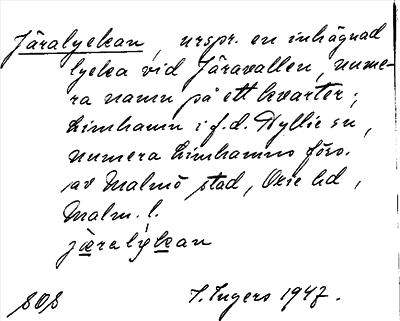 Järalyckan, urspr. en inhägnad
lycka vid Järavallen, nume-
ra namn på ett kvarter;
Limhamn i f.d. Hyllie sn,
numera Limhamns förs.
av Malmö stad, Oxie hd,
Malm. l.
jæ̀ralýkan
SOS I. Ingers 1947.